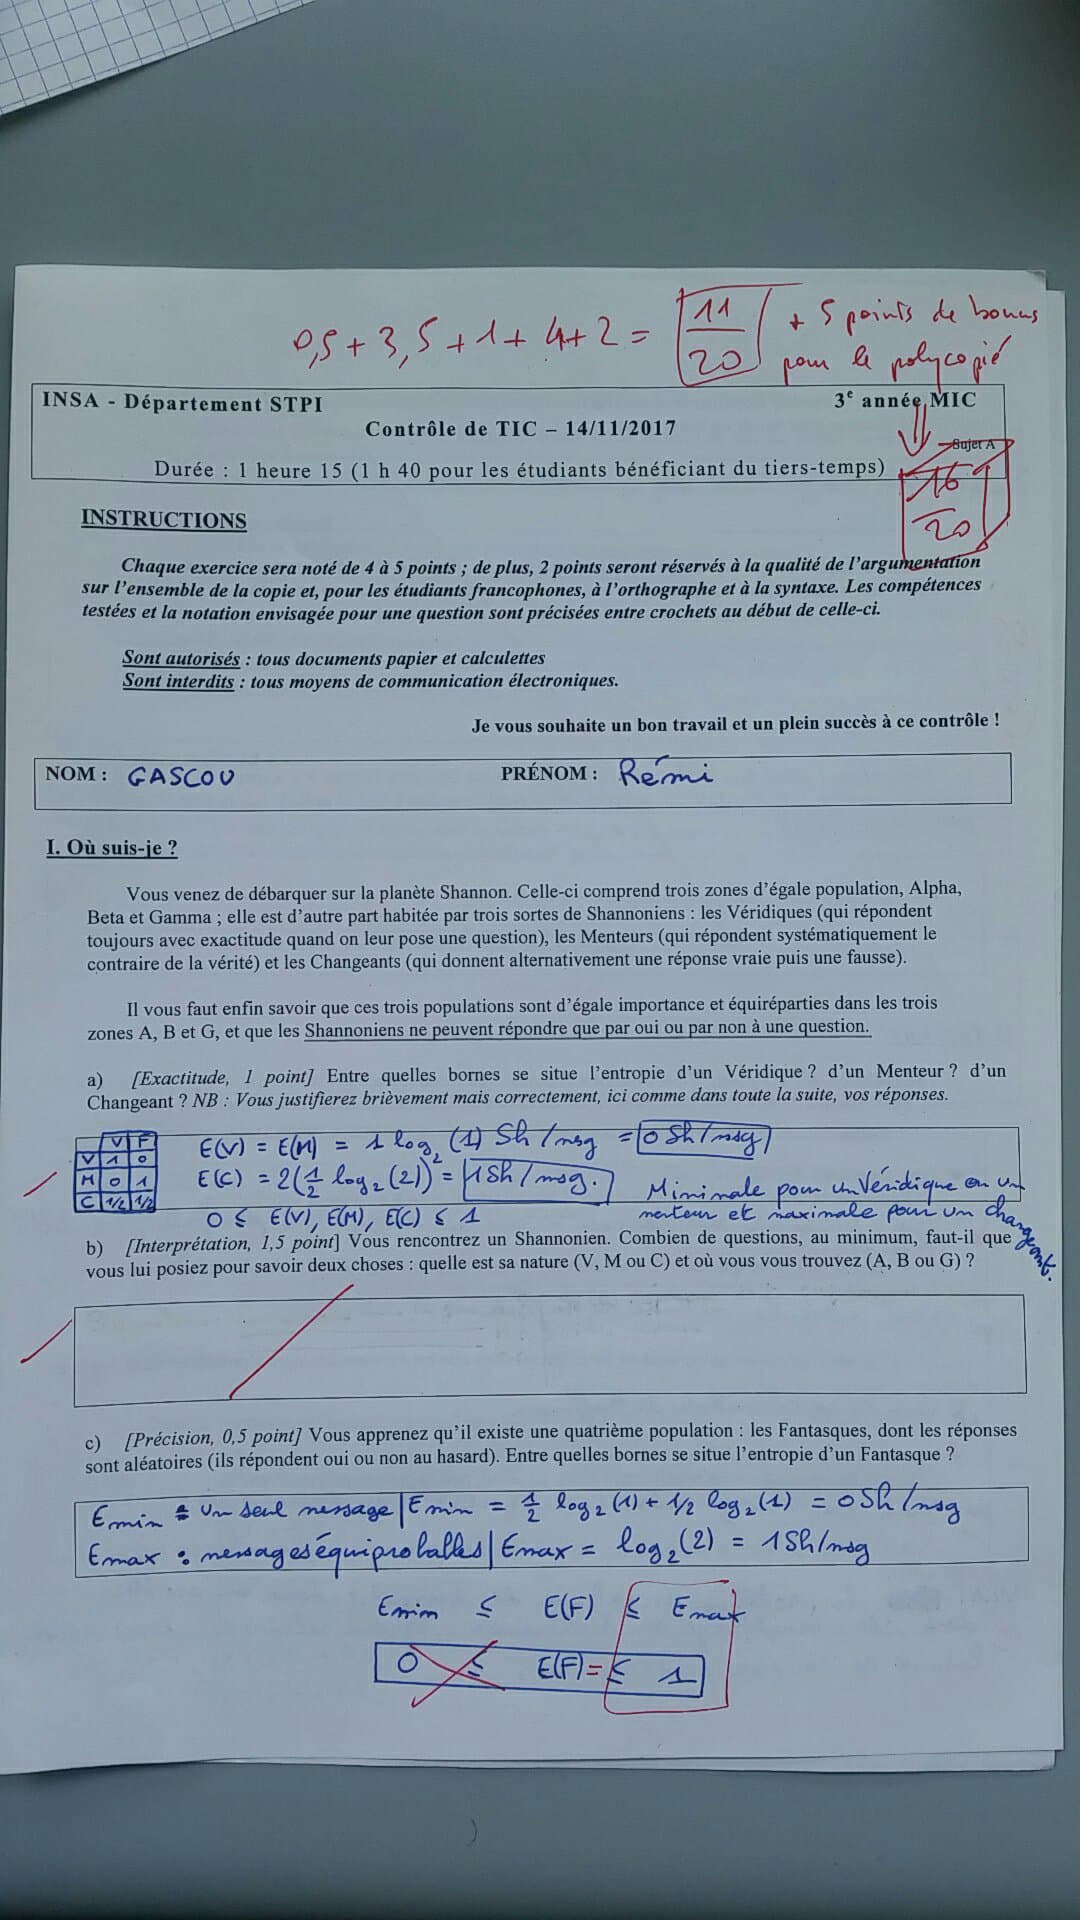 0,5 + 3,5 + 1 + 4 + 2 = 11/20 + 5 points de bonus
pour le polycopié
INSA - Département STPI 3e année MIC
Contrôle de TIC – 14/11/2017
Sujet A
Durée : 1 heure 15 (1 h 40 pour les étudiants bénéficiant du tiers-temps)
16/20
INSTRUCTIONS
Chaque exercice sera noté de 4 à 5 points ; de plus, 2 points seront réservés à la qualité de l'argumentation
sur l'ensemble de la copie et, pour les étudiants francophones, à l'orthographe et à la syntaxe. Les compétences
testées et la notation envisagée pour une question sont précisées entre crochets au début de celle-ci.
Sont autorisés : tous documents papier et calculettes
Sont interdits : tous moyens de communication électroniques.
Je vous souhaite un bon travail et un plein succès à ce contrôle !
NOM : GASCOU PRÉNOM : Rémi
I. Où suis-je ?
Vous venez de débarquer sur la planète Shannon. Celle-ci comprend trois zones d'égale population, Alpha,
Beta et Gamma ; elle est d'autre part habitée par trois sortes de Shannoniens : les Véridiques (qui répondent
toujours avec exactitude quand on leur pose une question), les Menteurs (qui répondent systématiquement le
contraire de la vérité) et les Changeants (qui donnent alternativement une réponse vraie puis une fausse).
Il vous faut enfin savoir que ces trois populations sont d'égale importance et équiréparties dans les trois
zones A, B et G, et que les Shannoniens ne peuvent répondre que par oui ou par non à une question.
a) [Exactitude, 1 point] Entre quelles bornes se situe l'entropie d'un Véridique ? d'un Menteur ? d'un
Changeant ? NB : Vous justifierez brièvement mais correctement, ici comme dans toute la suite, vos réponses.
V F
V 1 0
M 0 1
C 1/2 1/2
E(V) = E(M) = 1 log2(1) Sh/msg = 0 Sh/msg
E(C) = 2(1/2 log2(2)) = 1 Sh/msg.
0 ≤ E(V), E(M), E(C) ≤ 1
Minimale pour un Véridique ou un
menteur et maximale pour un changeant.
b) [Interprétation, 1,5 point] Vous rencontrez un Shannonien. Combien de questions, au minimum, faut-il que
vous lui posiez pour savoir deux choses : quelle est sa nature (V, M ou C) et où vous vous trouvez (A, B ou G) ?
c) [Précision, 0,5 point] Vous apprenez qu'il existe une quatrième population : les Fantasques, dont les réponses
sont aléatoires (ils répondent oui ou non au hasard). Entre quelles bornes se situe l'entropie d'un Fantasque ?
Emin : un seul message | Emin = 1/2 log2(1) + 1/2 log2(1) = 0 Sh/msg
Emax : messages équiprobables | Emax = log2(2) = 1 Sh/msg
Emin ≤ E(F) ≤ Emax
0 ≤ E(F) = ≤ 1